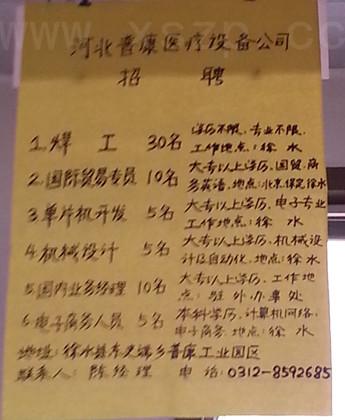 河北普康医疗设备公司
招 聘
1.焊 工 30名 学历不限,专业不限,
工作地点:徐 水
2.国际贸易专员 10名 大专以上学历,国贸,商
务英语,地点:北京保定徐水
3.单片机开发 5名 大专以上学历,电子专业
工作地点:徐 水
4.机械设计 5名 大专以上学历,机械设
计及自动化,地点:徐水
5.国内业务经理 10名 大专以上学历,工作地
点:驻外办事处
6.电子商务人员 5名 本科学历,计算机网络,
电子商务 地点:徐 水
地址:徐水县东史端乡普康工业园区
联系人: 陈经理 电 话:0312-8592685